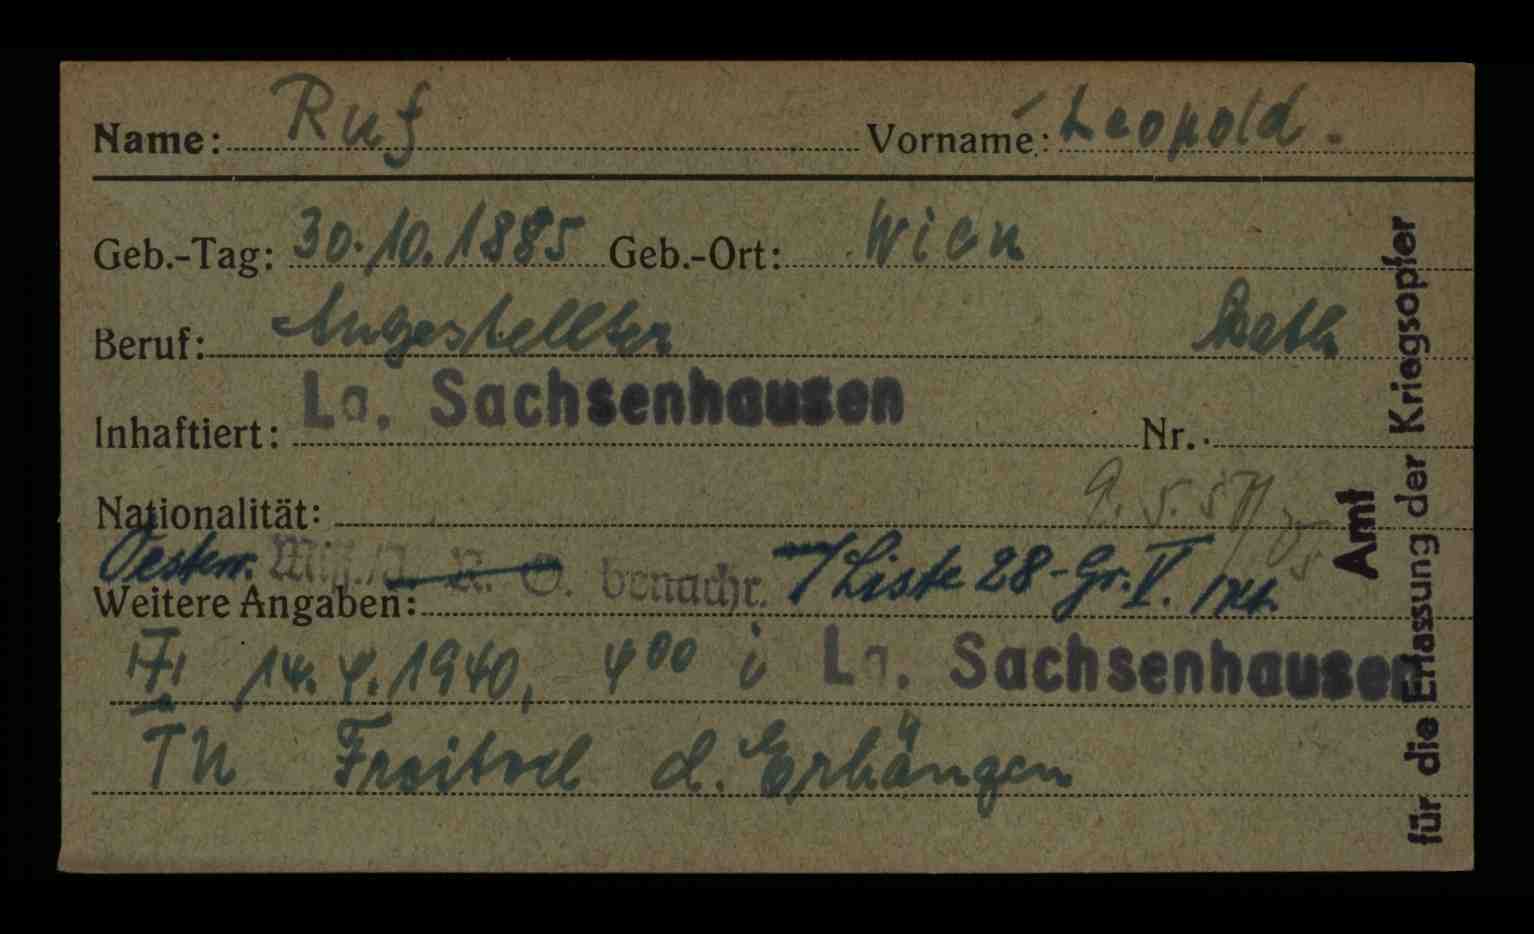 Name: Ruf Vorname: Leopold.
Geb.-Tag: 30.10.1885 Geb.-Ort: Wien
Beruf: Angestellter kath
Inhaftiert: La. Sachsenhausen Nr.
Nationalität: 9. 5. 57
Oesterr. Mitt./I. R. O. benachr. Liste 28-Gr. V.
Weitere Angaben:
14. 4. 1940, 4 00 i La. Sachsenhausen
TU Freitod d. Erhängen
Amt
für die Erfassung der Kriegsopfer